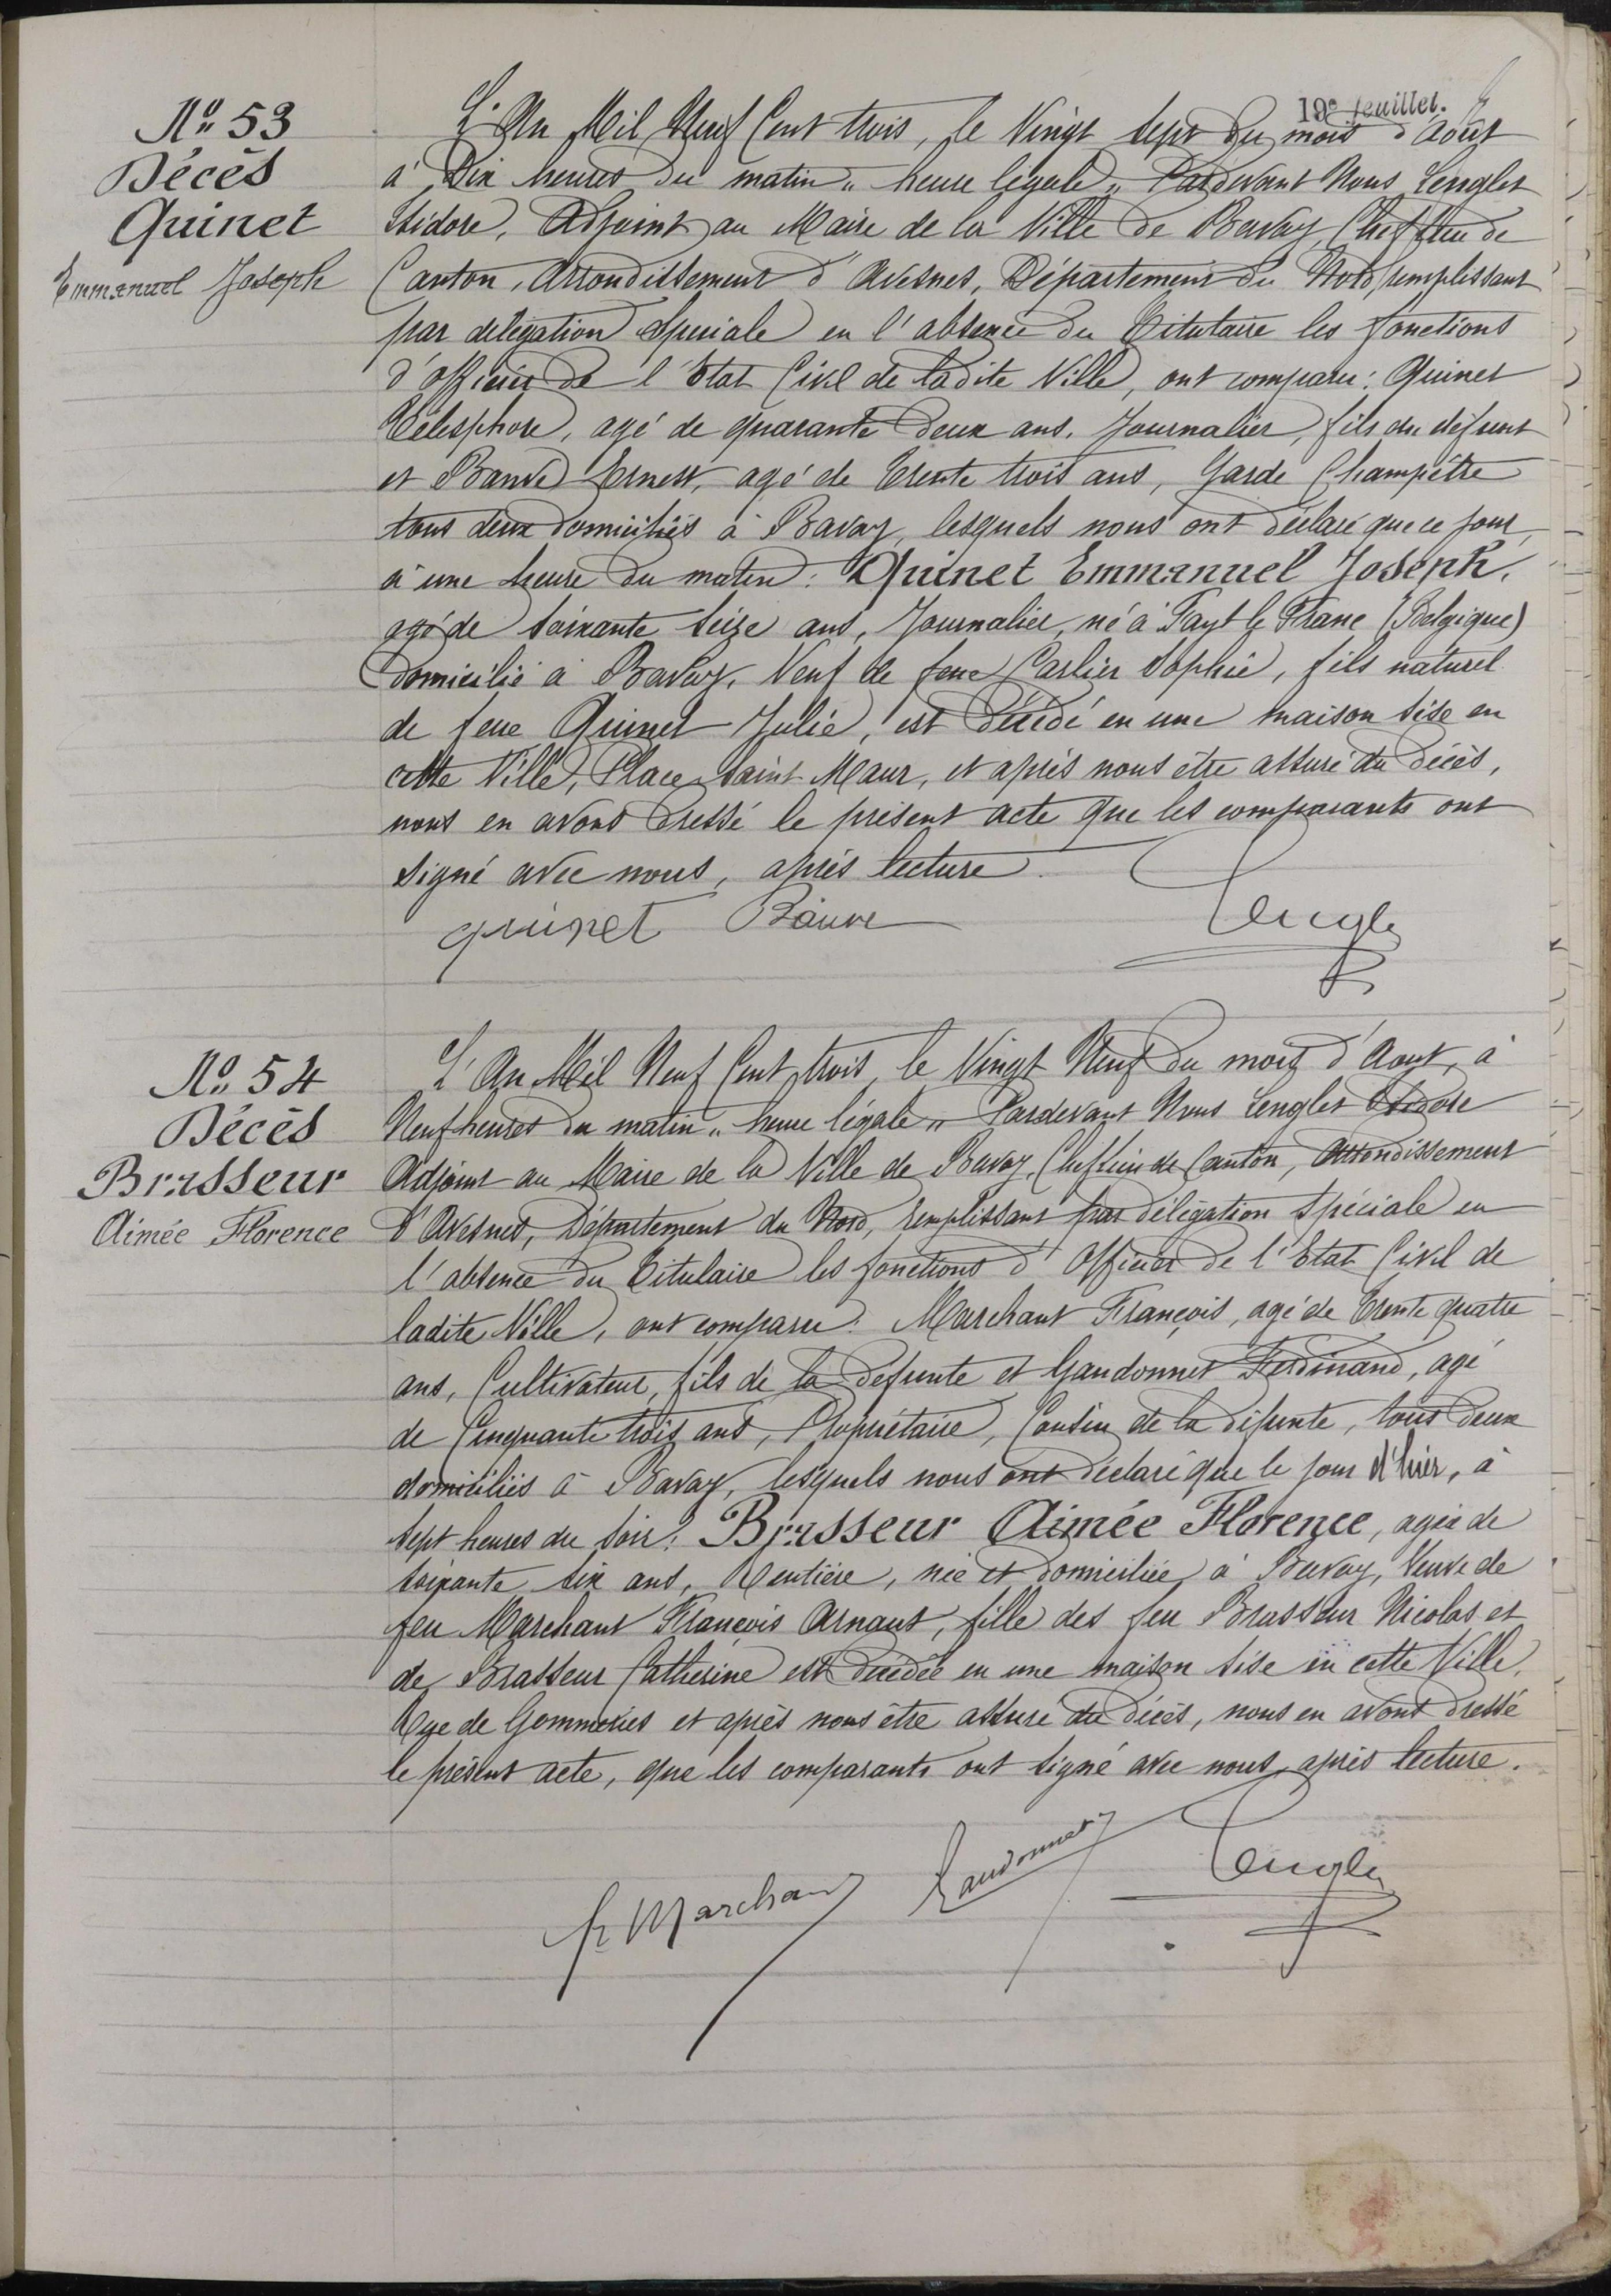 19e feuillet.
No 53
Décès
Quinet
Emmanuel Joseph
L'An Mil Neuf Cent trois, le Vingt sept du mois d'Août
à Dix heures du matin „ heure légale „ Pardevant Nous Lenglet
Isidore, Adjoint au Maire de la Ville de Bavay, Chef lieu de
Canton, Arrondissement d'Avesnes, Département du Nord, remplissant
par délégation spéciale en l'absence du Titulaire les fonctions
d'officier de l'Etat Civil de ladite Ville, ont comparu: Quinet
Télesphore, agé de quarante deux ans, Journalier, fils du défunt
et Bauve Ernest, agé de Trente trois ans, Garde Champêtre
tous deux domiciliés à Bavay, lesquels nous ont déclaré que ce jour,
à une heure du matin: Quinet Emmanuel Joseph,
agé de soixante seize ans, Journalier, né à Fayt le Franc (Belgique)
domicilié à Bavay, Veuf de feue Carlier Sophie, fils naturel
de feue Quinet Julie, est décédé en une maison sise en
cette Ville, Place Saint Maur, et après nous être assuré du décès,
nous en avons dressé le présent acte que les comparants ont
signé avec nous, après lecture.
quinet Bauve Lenglet
No 54
Décès
Brasseur
Aimée Florence
L'An Mil Neuf Cent trois, le Vingt Neuf du mois d'Aout, à
Neuf heures du matin „ heure légale „ Pardevant Nous Lenglet Isidore
Adjoint au Maire de la Ville de Bavay, Chef lieu de Canton, Arrondissement
d'Avesnes, Département du Nord, remplissant par délégation spéciale en
l'absence du Titulaire les fonctions d'Officier de l'Etat Civil de
ladite Ville, ont comparu: Marchant François, agé de Trente quatre
ans, Cultivateur, fils de la défunte et Gaudonnet Ferdinand, agé
de Cinquante trois ans, Propriétaire, Cousin de la défunte, tous deux
domiciliés à Bavay, lesquels nous ont déclaré que le jour d'hier, à
sept heures du soir: Brasseur Aimée Florence, agée de
soixante six ans, Rentière, née et domiciliée à Bavay, Veuve de
feu Marchant François Arnaut, fille des feu Brasseur Nicolas et
de Brasseur Catherine est décédée en une maison sise en cette Ville,
Rue de Gommeries et après nous être assuré du décès, nous en avons dressé
le présent acte, que les comparants ont signé avec nous, après lecture.
fr Marchant Gaudonnet Lenglet